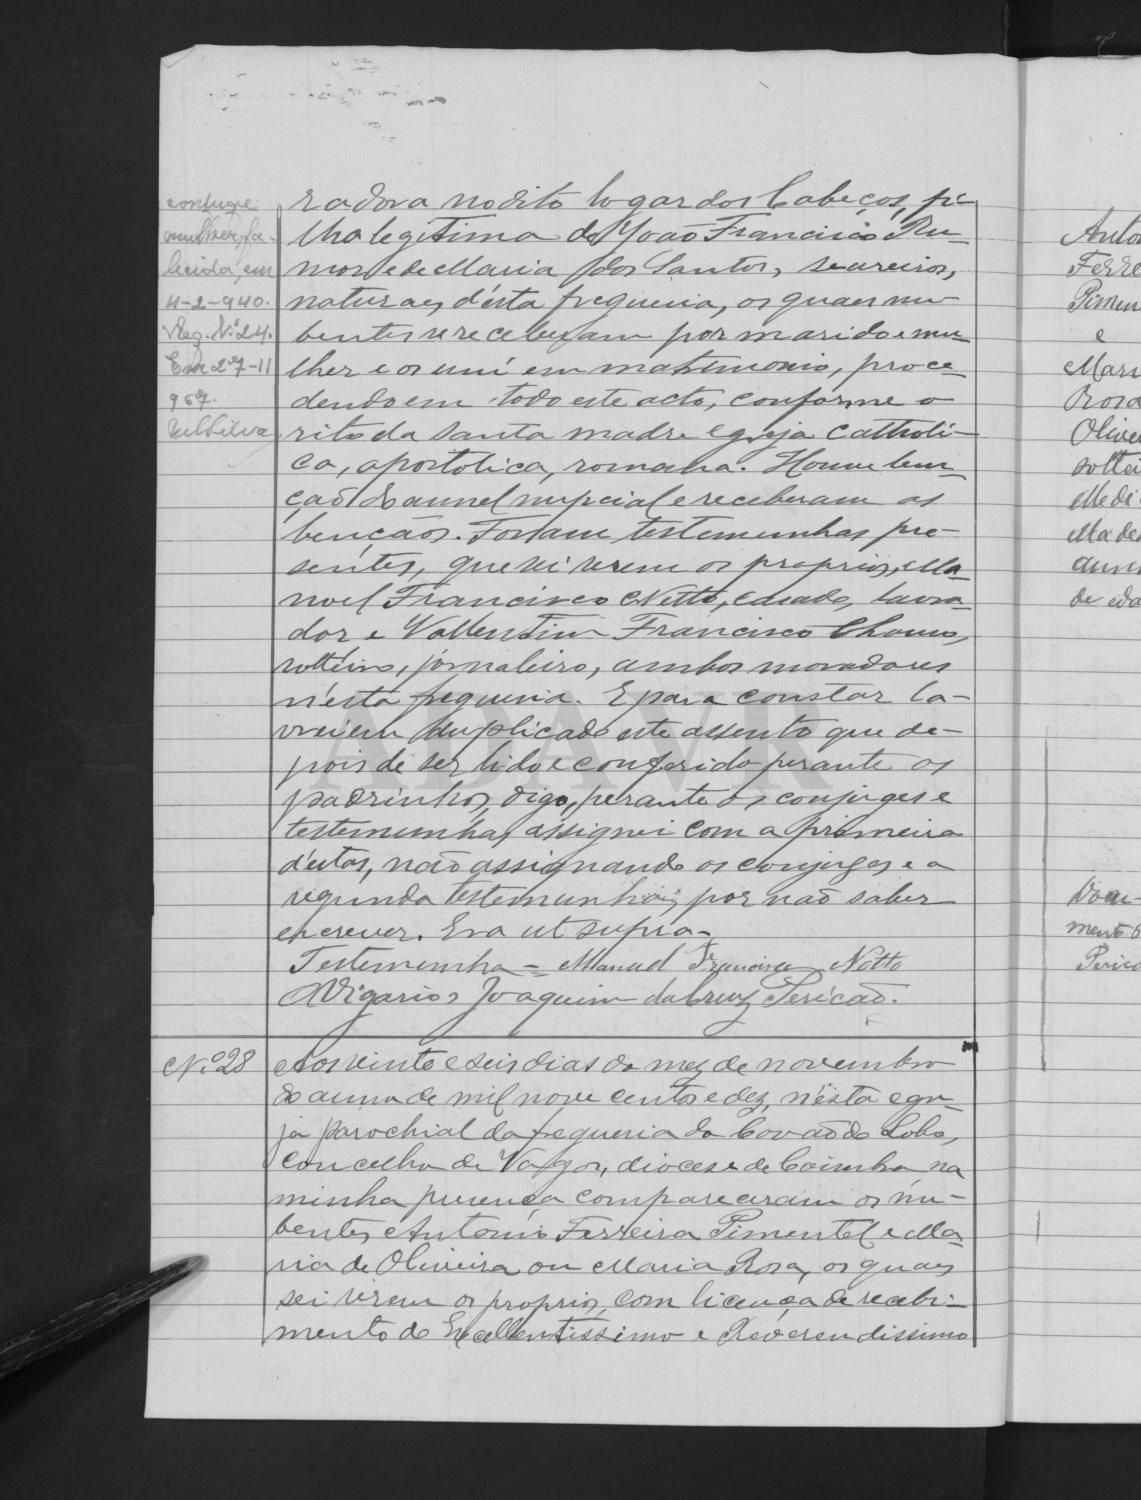 conjuge
mulher fa-
lecida em
4-2-940.
Reg. N.º 24.
Em 27-11
967.
Silva
radora no dito logar dos Cabeços, fi-
lha legitima de João Francisco Ru-
mor e de Maria dos Santos, seareiros,
naturaes d'ésta freguesia, os quaes nu-
bentes se receberam por marido e mu-
lher e os uni em matrimonio, proce-
dendo em todo este acto, conforme o
rito da santa madre egreja catholi-
ca, apostolica, romana. Houve ben-
ção do annel nupcial e receberam as
bençãos. Foram testemunhas pre-
sentes, que sei serem os proprios, Ma-
noel Francisco Netto, casado, lavra-
dor e Vallentim Francisco
solteiro, jornaleiro, ambos moradores
n'esta freguesia. E para constar la-
vrei em duplicado este assento que de-
pois de ser lido e conferido perante os
padrinhos, digo, perante os conjuges e
testemunhas assignei com a primeira
d'estas, não assignando os conjuges e a
segunda testemunha, por não saber
escrever. Era ut supra.
Testemunha = Manuel Francisco Netto
O Vigario Joaquim da Cruz Pericão.
N.º 28
Aos vinte e seis dias do mez de novembro
do anno de mil nove centos e dez, n'ésta egre-
ja parochial da freguesia do Covão do Lobo,
concelho de Vagos, diocese de Coimbra na
minha presença compareceram os nu-
bentes Antonio Ferreira Pimentel e Ma-
ria de Oliveira ou Maria Rosa, os quaes
sei serem os proprios, com licença de recebi-
mento do Excellentissimo e Reverendissimo
Anto
Ferre
Pimen
e
Mari
Rosa
Olivei
soltei
de eda
Docu-
mento
Perica
ADAVR